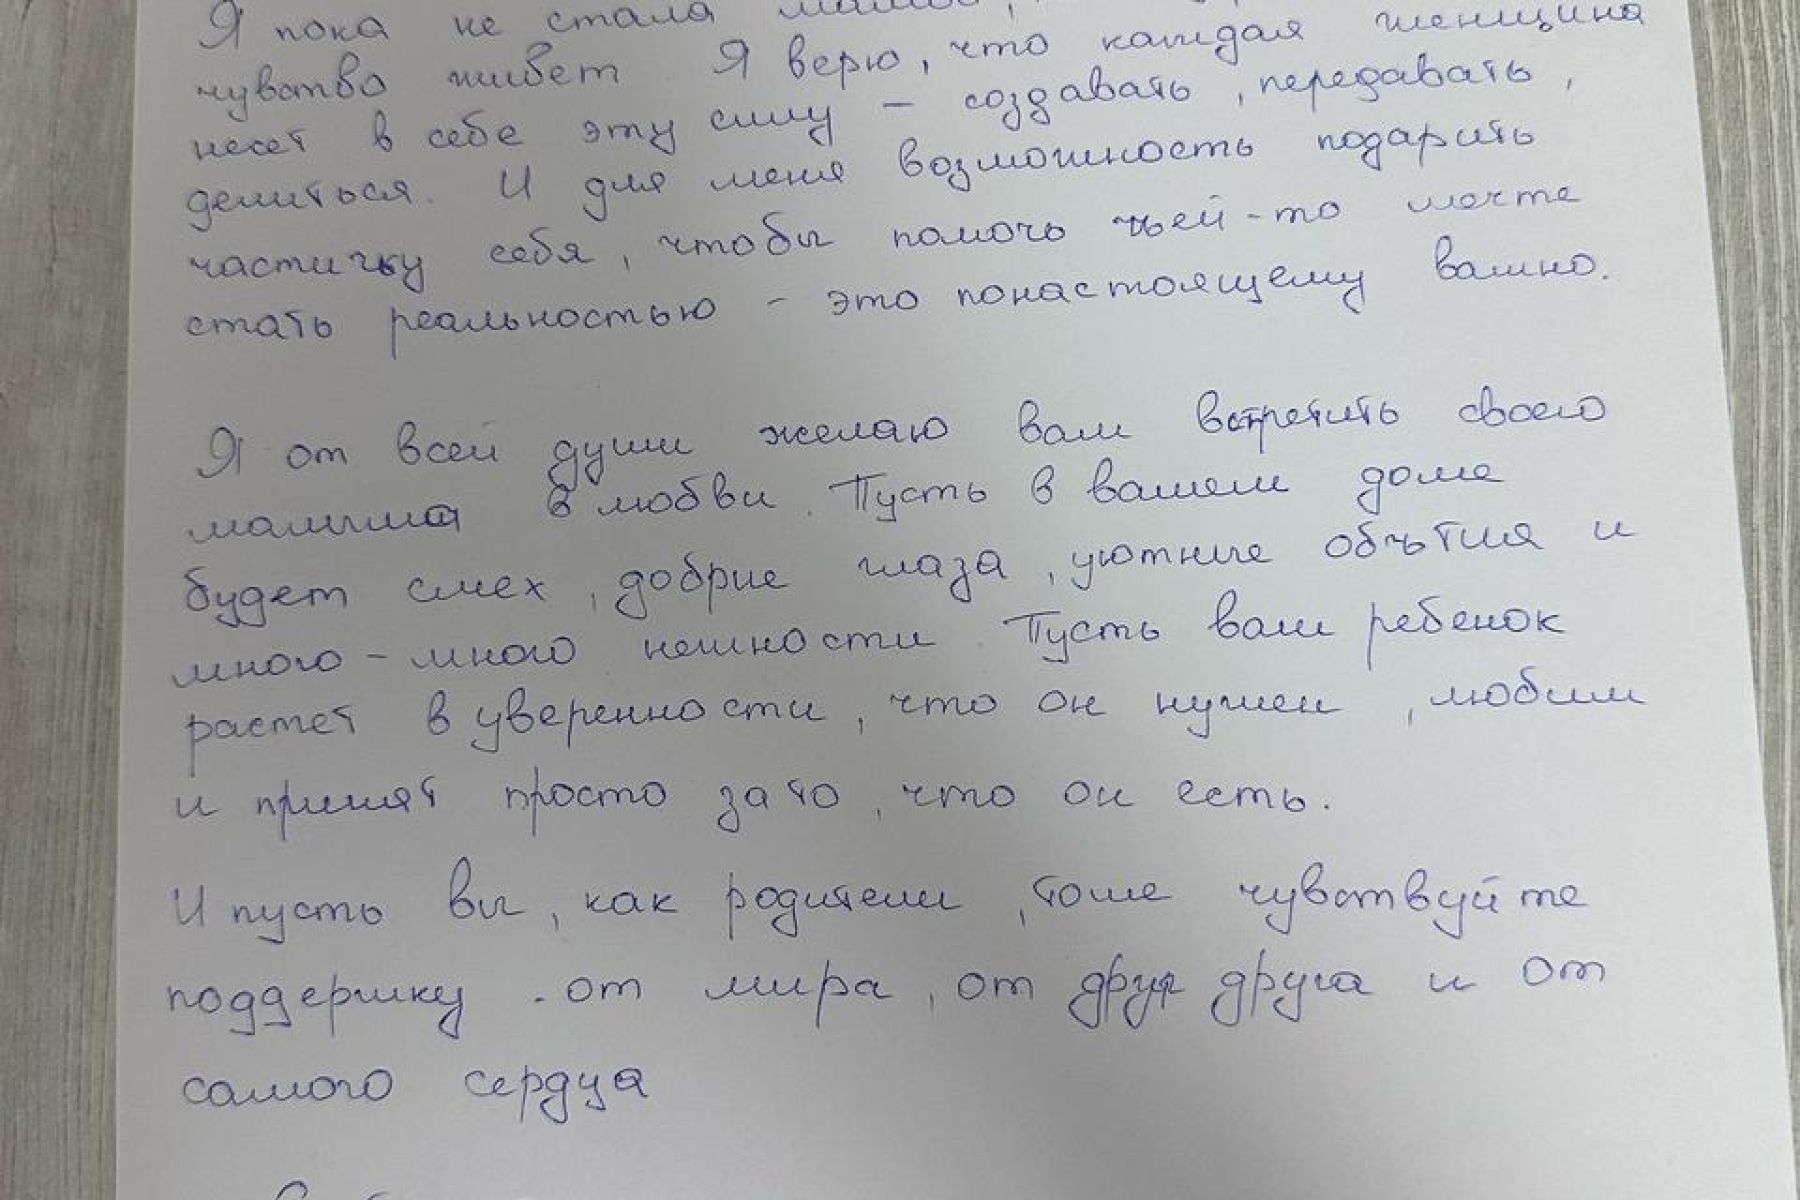 Я пока не стала мамой,
чувство живет. Я верю, что каждая женщина
несет в себе эту силу – создавать, передавать,
делиться. И для меня возможность подарить
частичку себя, чтобы помочь чьей-то мечте
стать реальностью – это понастоящему важно.
Я от всей души желаю вам встретить своего
малыша в любви. Пусть в вашем доме
будет смех, добрые глаза, уютные объятия и
много-много нежности. Пусть ваш ребенок
растет в уверенности, что он нужен, любим
и принят просто за то, что он есть.
И пусть вы, как родители, тоже чувствуйте
поддержку - от мира, от друг друга и от
самого сердца